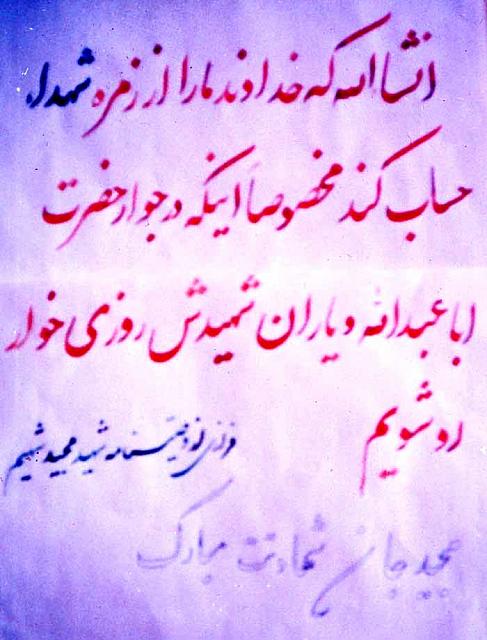 انشاالله که خداوند ما را از زمره شهداء
حساب کند مخصوصاً اینکه در جوار حضرت
ابا عبدالله و یاران شهیدش روزی خوار
او شویم
فرازی از وصیتنامه شهید مجید شهیم
مجید جان شهادتت مبارک